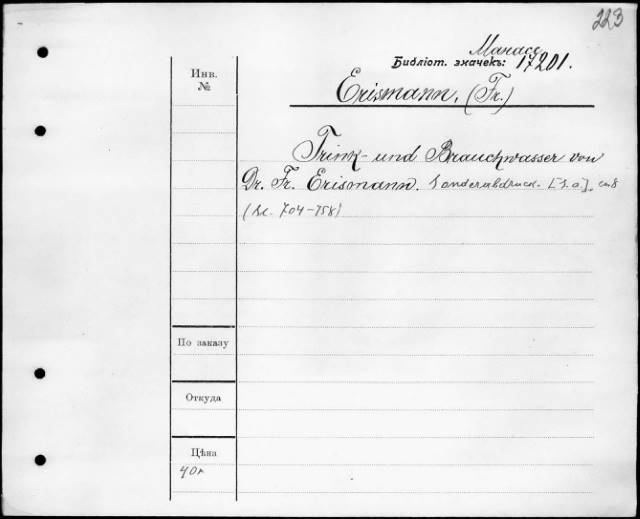 223
Манасс
Библіот. значекъ: 17201.
Инв.
№
Erismann, (Fr.)
Trink- und Brauchwasser von
Dr. Fr. Erismann. Sonderabdruck. [S.a].
704-758)
По заказу
Откуда
Цѣна
40к